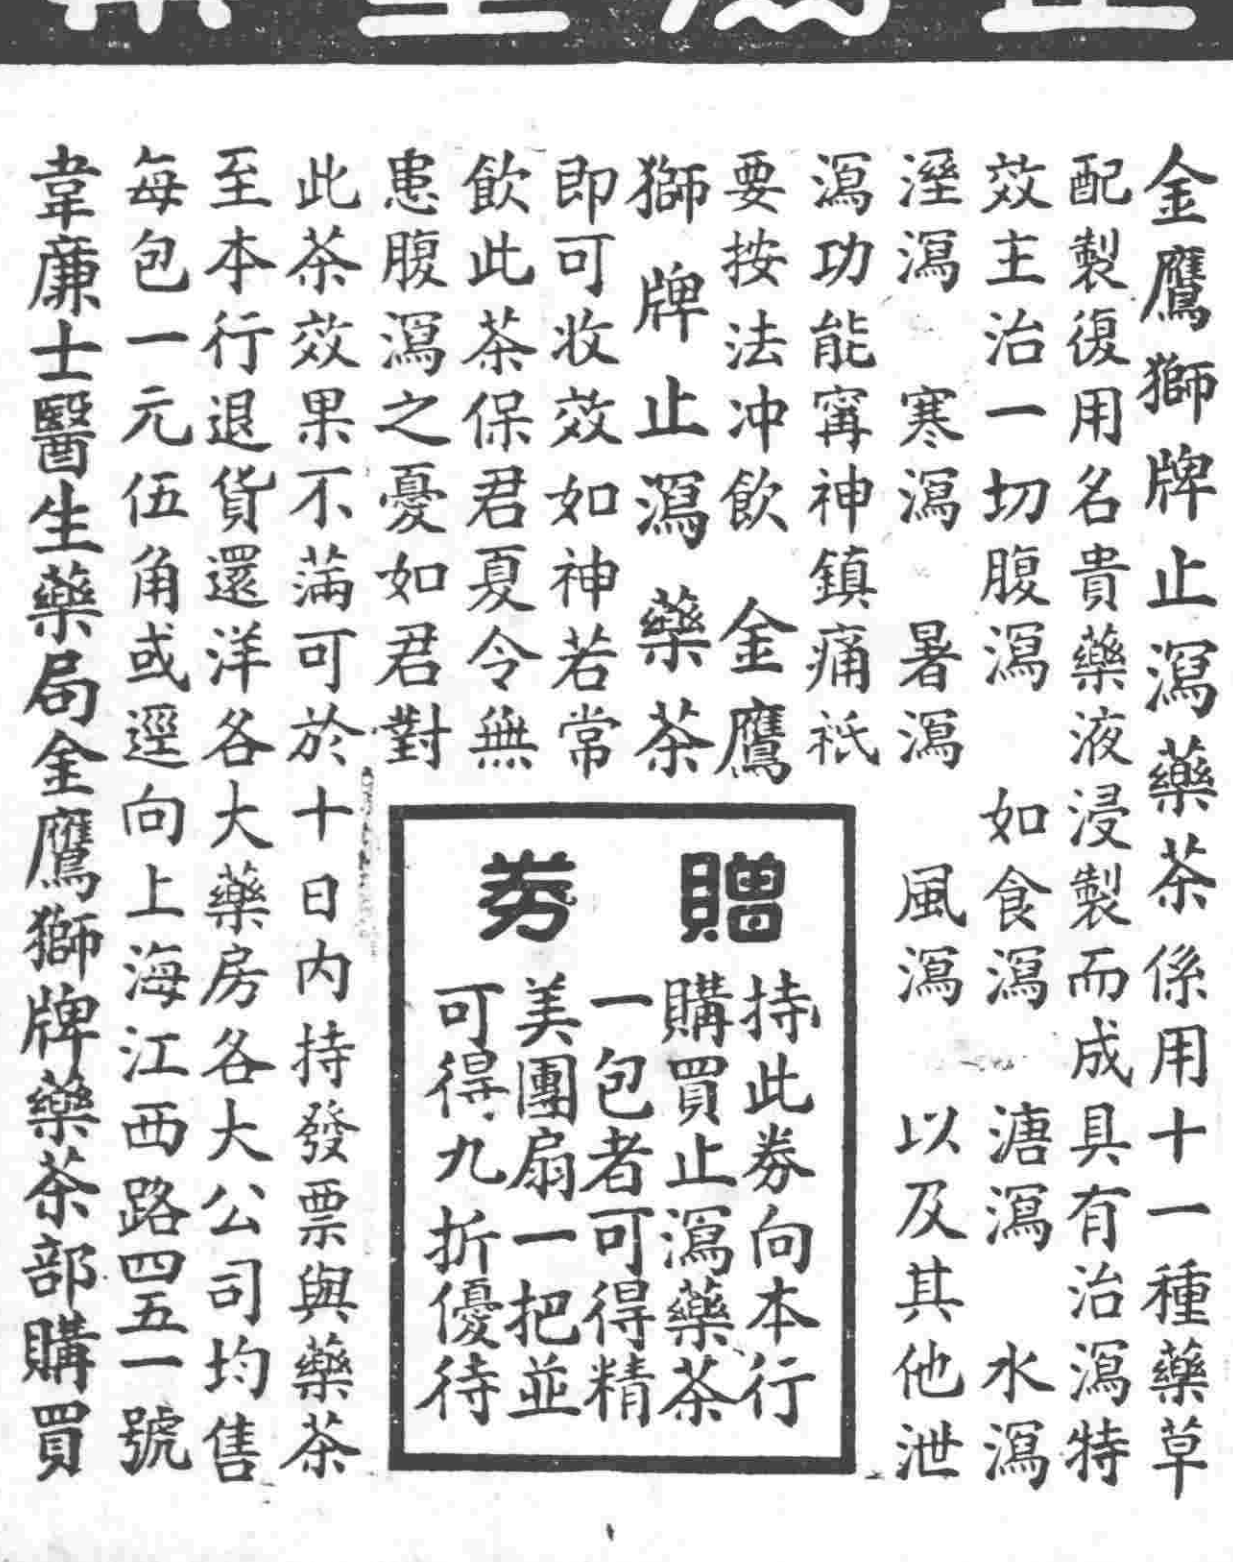 金鷹獅牌止瀉藥茶係用十一種藥草
配製復用名貴藥液浸製而成具有治瀉特
效主治一切腹瀉 如食瀉 溏瀉 水瀉
溼瀉 寒瀉 暑瀉 風瀉 以及其他泄
瀉功能寗神鎮痛祇
要按法冲飲 金鷹
獅牌止瀉藥茶
即可收效如神若常
飲此茶保君夏令無
患腹瀉之憂如君對
此茶效果不滿可於十日內持發票與藥茶
至本行退貨還洋各大藥房各大公司均售
每包一元伍角或逕向上海江西路四五一號
韋廉士醫生藥局金鷹獅牌藥茶部購買
贈券
持此券向本行
購買止瀉藥茶
一包者可得精
美團扇一把並
可得九折優待